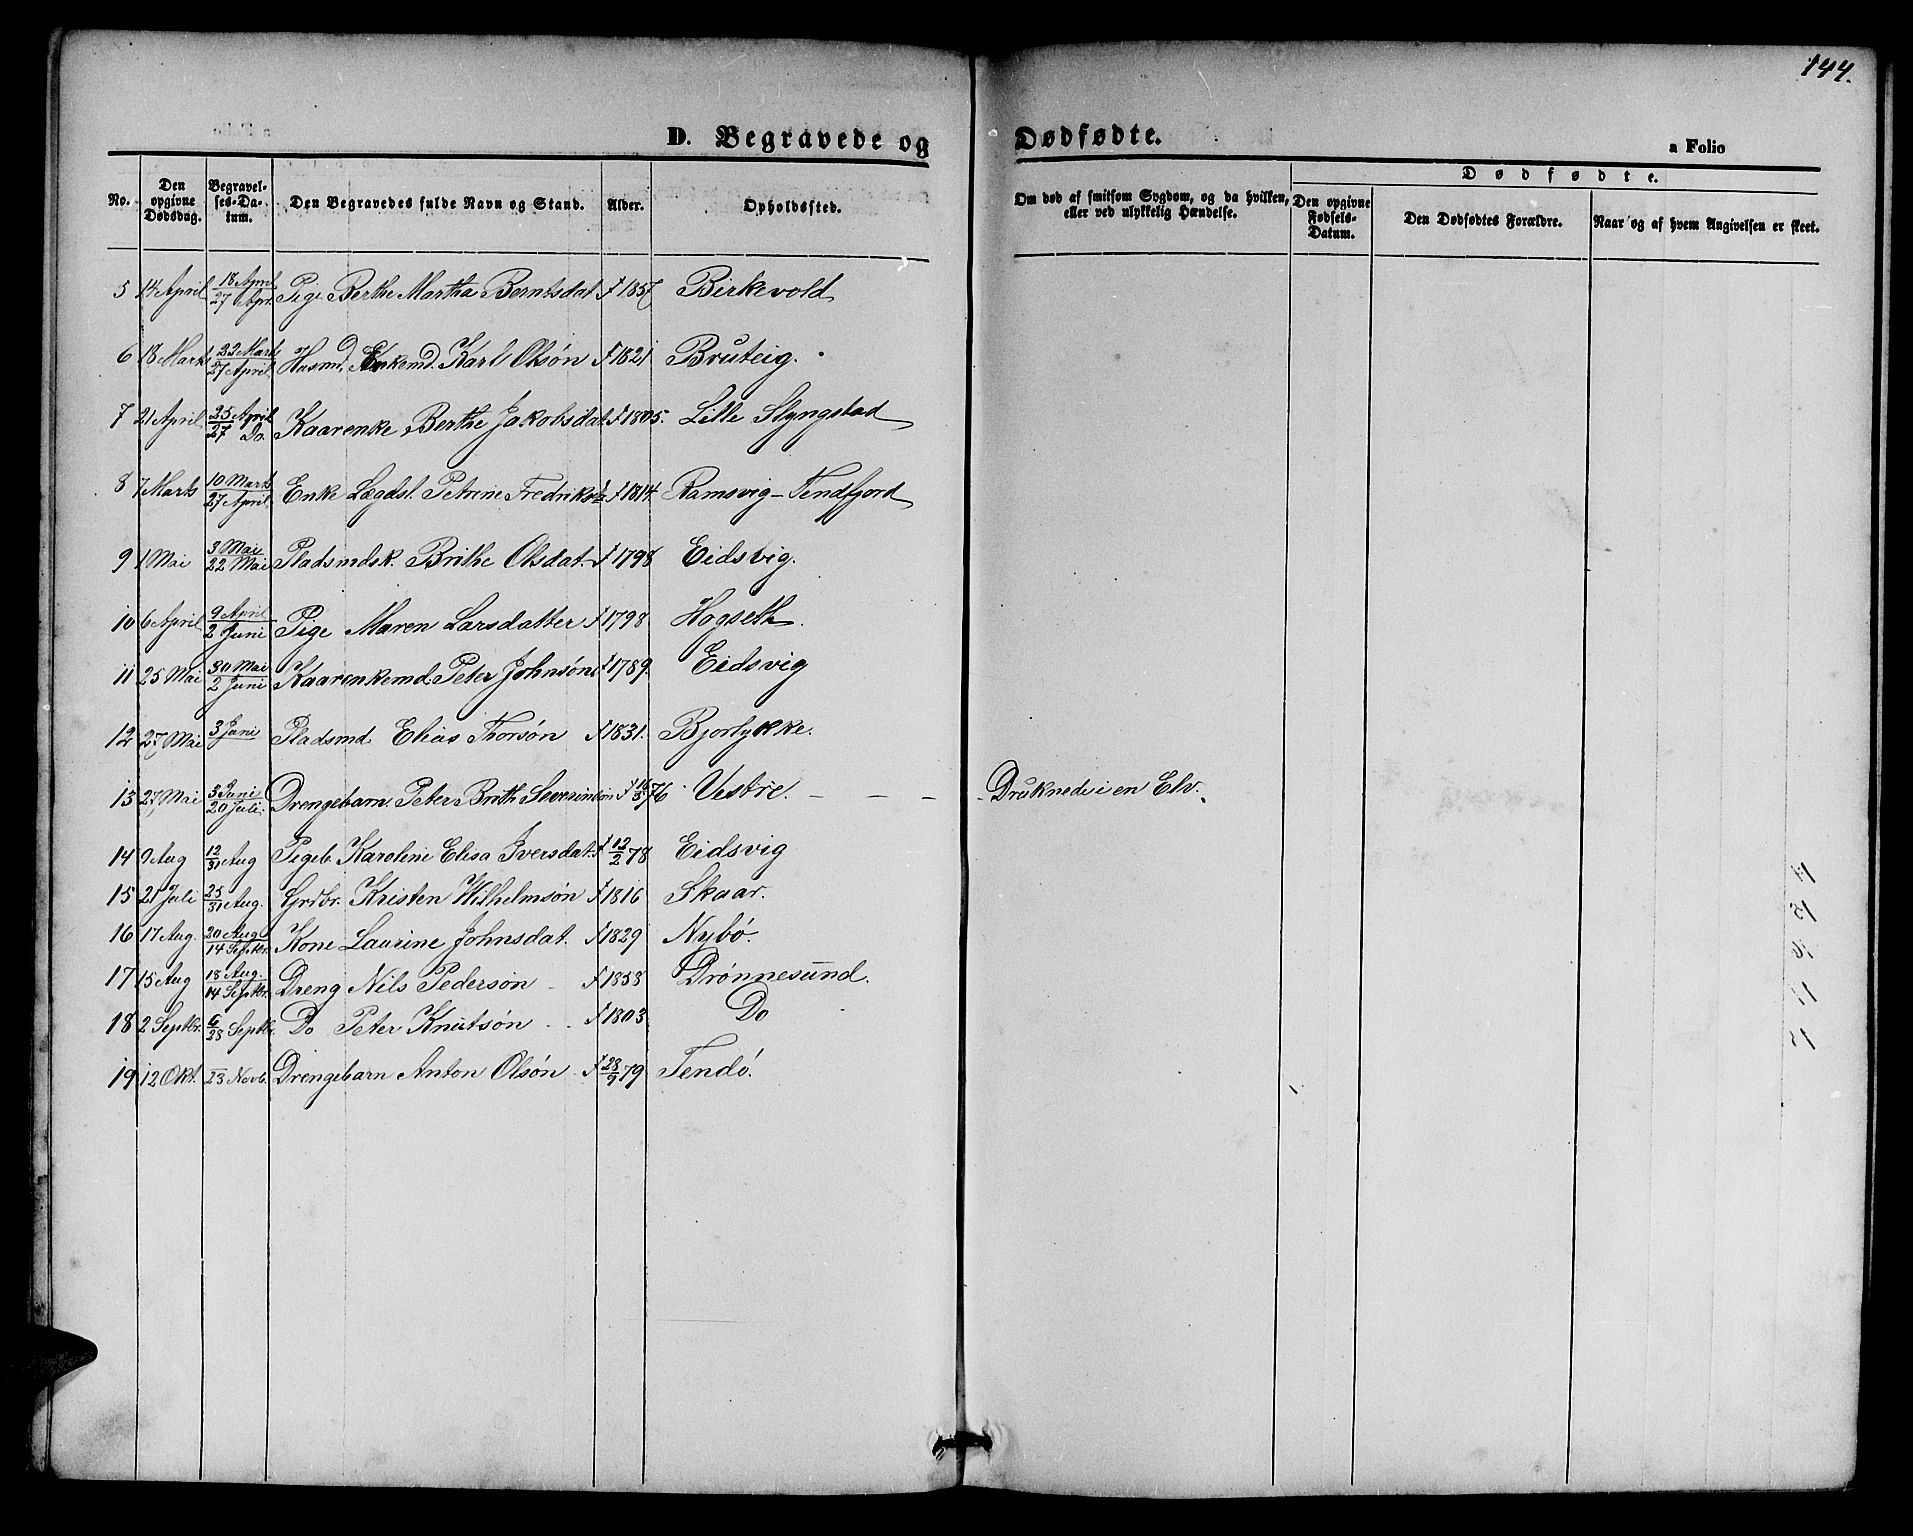 144.
D. Begravede og Dødfødte.
a Folio
No. Den opgivne Dødsdag. Begravelses-Datum. Den Begravedes fulde Navn og Stand. Alder. Opholdssted. Om død af smitsom Sygdom, og da hvilken, eller ved ulykkelig Hændelse. Dødfødte. Den opgivne Fødsels-Datum. Den Dødfødtes Forældre. Naar og af hvem Angivelsen er skeet.
5 14 April 18 April / 27 Apr. Pige Berthe Martha Berntsdat. f 1857 Birkevold
6 18 Marts 22 Marts / 27 April Husmd. Enkemd. Karl Olsøn f 1821 Bruteig.
7 21 April 25 April / 27 Do. Kaarenke Berthe Jakobsdat. f 1805. Lille Slyngstad
8 7 Marts 10 Marts / 27 April Enke Lægdsl. Petrine Fredriksd. f 1814. Ramsvig - Tendfjord
9 1 Mai 3 Mai / 22 Mai Pladsmdsk. Brithe Olsdat. f 1798 Eidsvig.
10 6 April 9 April / 2 Juni Pige Maren Larsdatter f 1798 Hogseth.
11 25 Mai 30 Mai / 2 Juni Kaarenkemd. Peter Johnsøn f 1789. Eidsvig
12 27 Mai 3 Juni Pladsmd Elias Thorsøn f 1831. Bjorlykke.
13 27 Mai 3 Juni / 20 Juli. Drengebarn Peter Brith Severinsøn f 16/3 76 Vestre. - - - Druknede i en Elv.
14 9 Aug 12/31 Aug Pigeb. Karoline Elisa Iversdat. f 12/2 78 Eidsvig
15 21 Juli 25/31 Aug. Grdbr. Kristen Wilhelmsøn f 1816 Skaar.
16 17 Aug. 20 Aug / 14 Septbr. Kone Laurine Johnsdat. f 1829 Nybø.
17 15 Aug 18 Aug. / 14 Septbr. Dreng Nils Pedersøn - f 1858 Drønnesund.
18 2 Septbr. 6/28 Septbr. Do Peter Knutsøn - f 1803 Do
19 12 Okt. 23 Novb. Drengebarn Anton Olsøn f 28/9 79 Tendø.